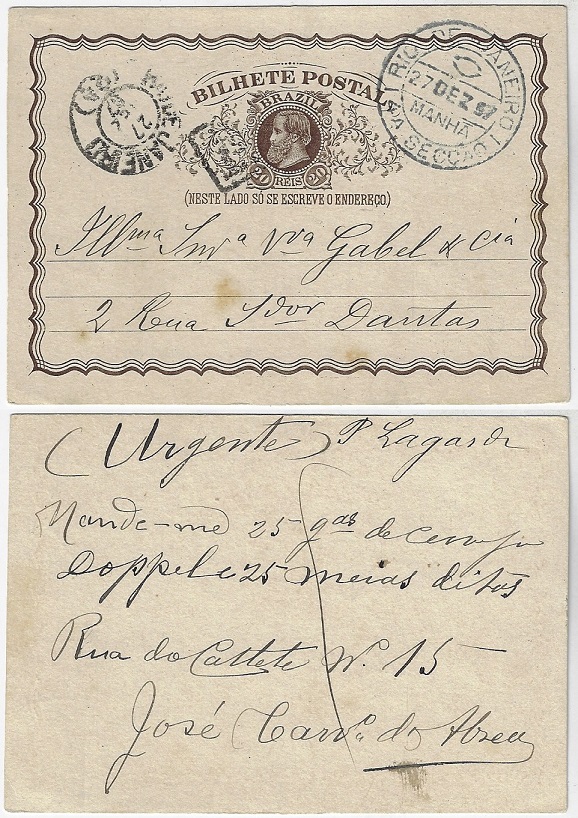 BILHETE POSTAL
BRAZIL
20 REIS 20
(NESTE LADO SÓ SE ESCREVE O ENDEREÇO)
RIO DE JANEIRO
27 DEZ 87
MANHÃ
SECCÃO
RIO DE JANEIRO
27
Illma Snra Vva Gabel & Cia
2 Rua Sdor Dantas
(Urgente) P
Mande-me 25 gas de cerveja
Doppel e 25 meias ditas
Rua do Cattete Nº 15
José Carvo de Abreu